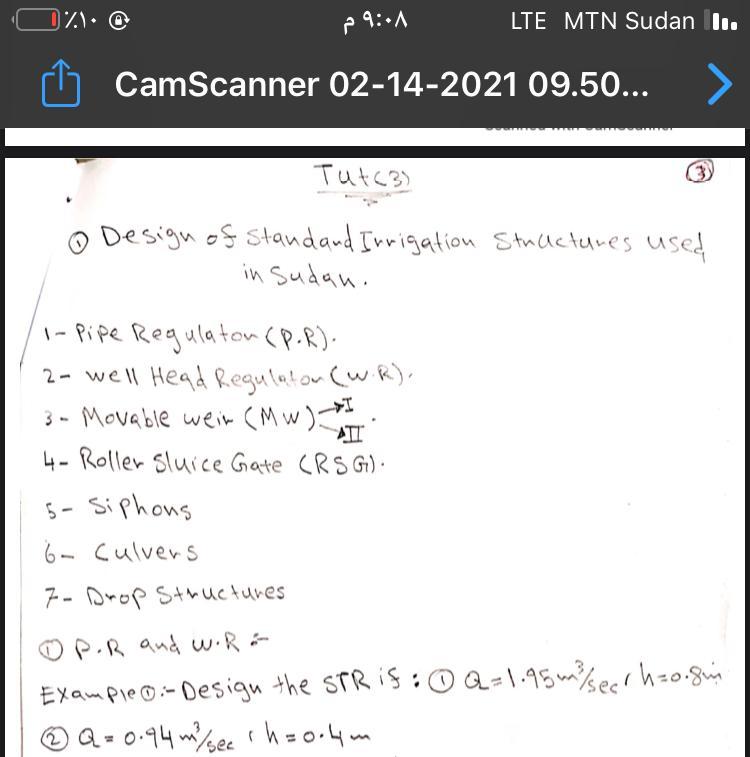 ٪١٠ ٩:٠٨ م LTE MTN Sudan
CamScanner 02-14-2021 09.50...
Scanned with CamScanner
Tut(3) 3
① Design of Standard Irrigation Structures used
in Sudan.
1- Pipe Regulator (P.R).
2- well Head Regulator (W.R).
3- Movable weir (MW) → I
→ II .
4- Roller Sluice Gate (RSG).
5- Siphons
6- Culvers
7- Drop Structures
① P.R and W.R :-
Example ①:- Design the STR if : ① Q=1.95 m³/sec , h=0.8m
② Q = 0.94 m³/sec , h = 0.4 m